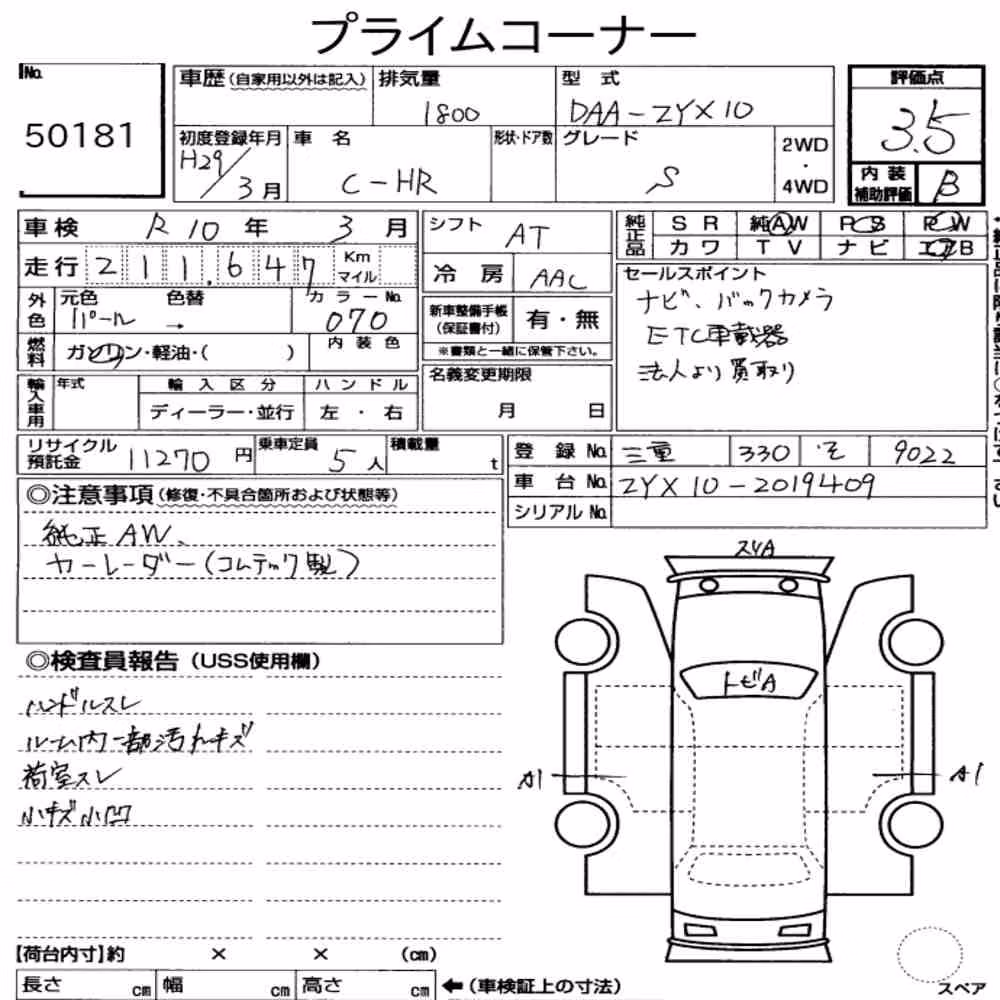 プライムコーナー
No.
50181
車歴(自家用以外は記入)
排気量
1800
型 式
DAA-ZYX10
評価点
3.5
内装補助評価
B
初度登録年月
H29/3月
車 名
C-HR
形状・ドア数
グレード
S
2WD・4WD
車検 R10年 3月
走行 211,647 Km マイル
外色
元色 パール
色替 →
カラーNo. 070
燃料
ガソリン・軽油・( )
内装色
シフト AT
冷房 AAC
新車整備手帳(保証書付) 有・無
※書類と一緒に保管下さい。
純正品
SR 純AW PS PW
カワ TV ナビ エアB
セールスポイント
ナビ、バックカメラ
ETC車載器
法人より買取り
輸入車用
年式
輸入区分
ディーラー・並行
ハンドル
左・右
名義変更期限
月 日
リサイクル預託金 11270円
乗車定員 5人
積載量 t
登録No. 三重 330 そ 9022
車台No. ZYX10-2019409
シリアルNo.
◎注意事項(修復・不具合箇所および状態等)
純正AW、
カーレーダー(コムテック製)
◎検査員報告(USS使用欄)
ハンドルスレ
ルーム内一部汚れキズ
荷室スレ
小キズ小凹
スリA
トビA
A1
A1
【荷台内寸】約 × × (cm)
長さ cm 幅 cm 高さ cm ←(車検証上の寸法)
スペア